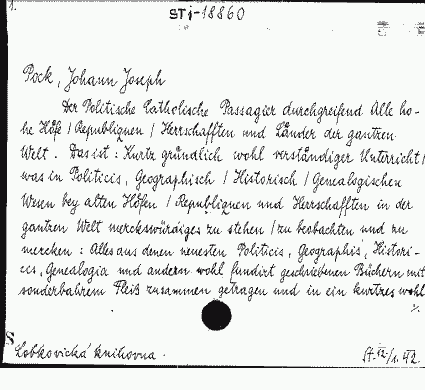 STi-18860
Pock, Johann Joseph
Der Politische Catholische Passagier durchgreifend Alle ho-
he Höfe / Republiquen / Herrschafften und Länder der gantzen
Welt. Das ist: Kurtz gründlich wohl verständiger Unterricht /
was in Politicis, Geographisch / Historisch / Genealogischen
Wesen bey allen Höfen / Republiquen und Herrschafften in der
gantzen Welt merckswürdiges zu stehen / zu beobachten und zu
mercken: Alles aus denen neuesten Politicis, Geographis, Histori-
cis, Genealogia und andern wohl fundirt geschriebenen Büchern mit
sonderbahrem Fleiß zusammen getragen und in ein kurtzes wohl
%
S
Lobkovická knihovna.